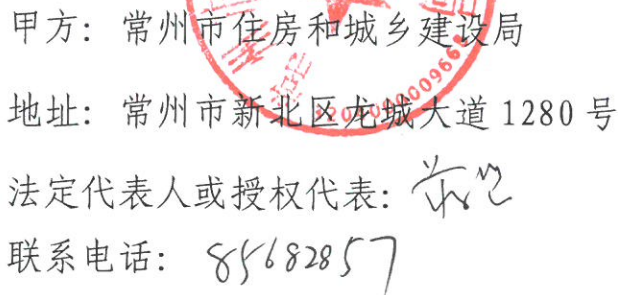 甲方：常州市住房和城乡建设局
地址：常州市新北区龙城大道1280号
法定代表人或授权代表：
联系电话：85682857